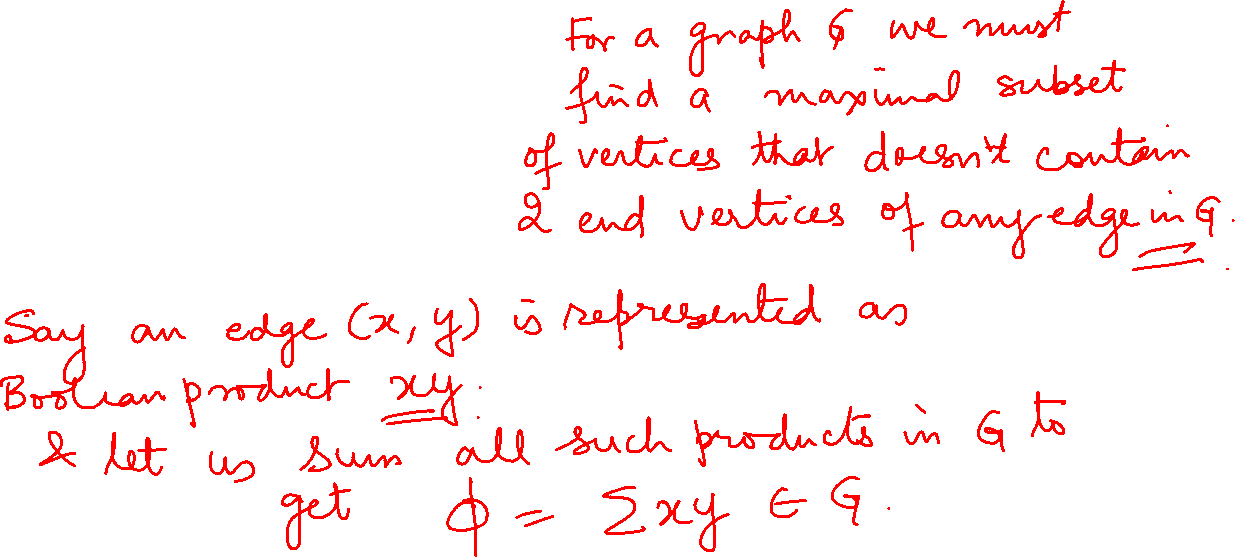 For a graph G we must
find a maximal subset
of vertices that doesn't contain
2 end vertices of any edge in G.
Say an edge (x, y) is represented as
Boolean product xy.
& let us sum all such products in G to
get ϕ = Σxy ∈ G.